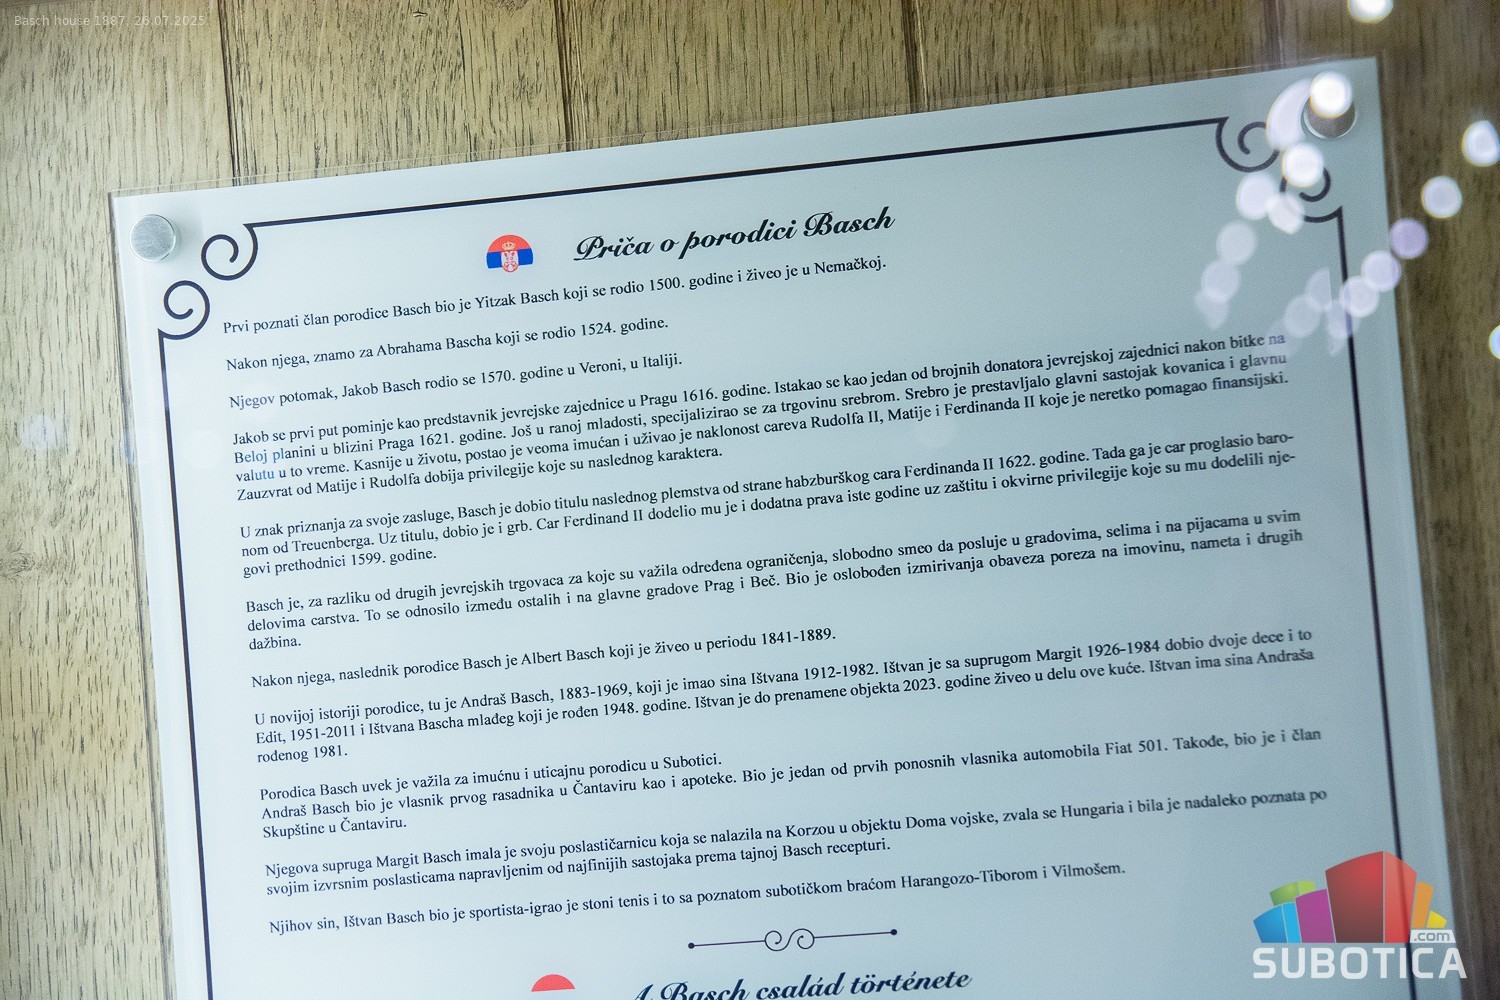 Basch house 1887, 26.07.2025.
Priča o porodici Basch
Prvi poznati član porodice Basch bio je Yitzak Basch koji se rodio 1500. godine i živeo je u Nemačkoj.
Nakon njega, znamo za Abrahama Bascha koji se rodio 1524. godine.
Njegov potomak, Jakob Basch rodio se 1570. godine u Veroni, u Italiji.
Jakob se prvi put pominje kao predstavnik jevrejske zajednice u Pragu 1616. godine. Istakao se kao jedan od brojnih donatora jevrejskoj zajednici nakon bitke na
Beloj planini u blizini Praga 1621. godine. Još u ranoj mladosti, specijalizirao se za trgovinu srebrom. Srebro je prestavljalo glavni sastojak kovanica i glavnu
valutu u to vreme. Kasnije u životu, postao je veoma imućan i uživao je naklonost careva Rudolfa II, Matije i Ferdinanda II koje je neretko pomagao finansijski.
Zauzvrat od Matije i Rudolfa dobija privilegije koje su naslednog karaktera.
U znak priznanja za svoje zasluge, Basch je dobio titulu naslednog plemstva od strane habzburškog cara Ferdinanda II 1622. godine. Tada ga je car proglasio baro-
nom od Treuenberga. Uz titulu, dobio je i grb. Car Ferdinand II dodelio mu je i dodatna prava iste godine uz zaštitu i okvirne privilegije koje su mu dodelili nje-
govi prethodnici 1599. godine.
Basch je, za razliku od drugih jevrejskih trgovaca za koje su važila određena ograničenja, slobodno smeo da posluje u gradovima, selima i na pijacama u svim
delovima carstva. To se odnosilo između ostalih i na glavne gradove Prag i Beč. Bio je oslobođen izmirivanja obaveza poreza na imovinu, nameta i drugih
dažbina.
Nakon njega, naslednik porodice Basch je Albert Basch koji je živeo u periodu 1841-1889.
U novijoj istoriji porodice, tu je Andraš Basch, 1883-1969, koji je imao sina Ištvana 1912-1982. Ištvan je sa suprugom Margit 1926-1984 dobio dvoje dece i to
Edit, 1951-2011 i Ištvana Bascha mlađeg koji je rođen 1948. godine. Ištvan je do prenamene objekta 2023. godine živeo u delu ove kuće. Ištvan ima sina Andraša
rođenog 1981.
Porodica Basch uvek je važila za imućnu i uticajnu porodicu u Subotici.
Andraš Basch bio je vlasnik prvog rasadnika u Čantaviru kao i apoteke. Bio je jedan od prvih ponosnih vlasnika automobila Fiat 501. Takođe, bio je i član
Skupštine u Čantaviru.
Njegova supruga Margit Basch imala je svoju poslastičarnicu koja se nalazila na Korzou u objektu Doma vojske, zvala se Hungaria i bila je nadaleko poznata po
svojim izvrsnim poslasticama napravljenim od najfinijih sastojaka prema tajnoj Basch recepturi.
Njihov sin, Ištvan Basch bio je sportista-igrao je stoni tenis i to sa poznatom subotičkom braćom Harangozo-Tiborom i Vilmošem.
A Basch család története
.com
SUBOTICA